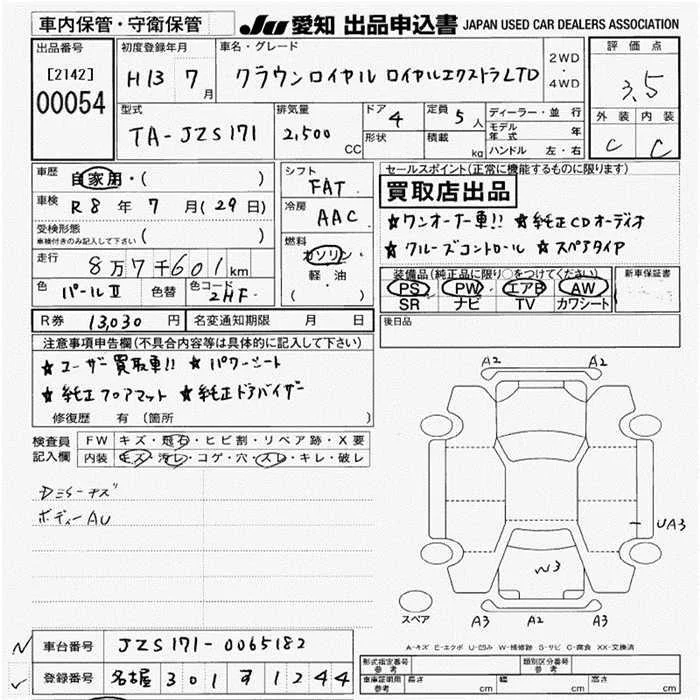 車内保管・守衛保管
JU 愛知 出品申込書 JAPAN USED CAR DEALERS ASSOCIATION
出品番号
[2142]
00054
初度登録年月
H13 7月
車名・グレード
クラウンロイヤル ロイヤルエクストラLTD
2WD
・
4WD
評価点
3.5
外装 内装
C C
型式
TA-JZS171
排気量
2,500 CC
ドア 4
形状
定員 5人
積載 kg
ディーラー・並行
モデル年式 年
ハンドル 左・右
車歴
自家用・( )
車検
R8年7月(29日)
受検形態
車検付きのみ記入して下さい ( )
走行
8万7千601km
色 パールⅡ 色替 色コード 2HF
シフト
FAT
冷房
AAC
燃料
ガソリン
軽油
( )
セールスポイント(正常に機能するものに限ります)
買取店出品
★ワンオーナー車!! ★純正CDオーディオ
★クルーズコントロール ★スペアタイヤ
装備品(純正品に限り○をつけてください)
PS PW エアB AW
SR ナビ TV カワシート
新車保証書
後日品
R券 13,030円 名変通知期限 月 日
注意事項申告欄(不具合内容等は具体的に記入して下さい)
★ユーザー買取車!! ★パワーシート
★純正フロアマット ★純正ドアバイザー
修復歴 有 (箇所 )
検査員
記入欄
FW キズ・飛石・ヒビ割・リペア跡・X要
内装 キズ・汚レ・コゲ・穴・スレ・キレ・破レ
ボディーAU
A2 A2
UA3
W3
スペア
A3 A2 A3
A-キズ E-エクボ U-凹み W-補修跡 S-サビ C-腐食 XX-交換済
車台番号 JZS171-0065182
登録番号 名古屋 301 す 1244
形式指定番号
参考
類別区分番号
参考
車庫証明用
参考
長さ cm 幅 cm 高さ cm